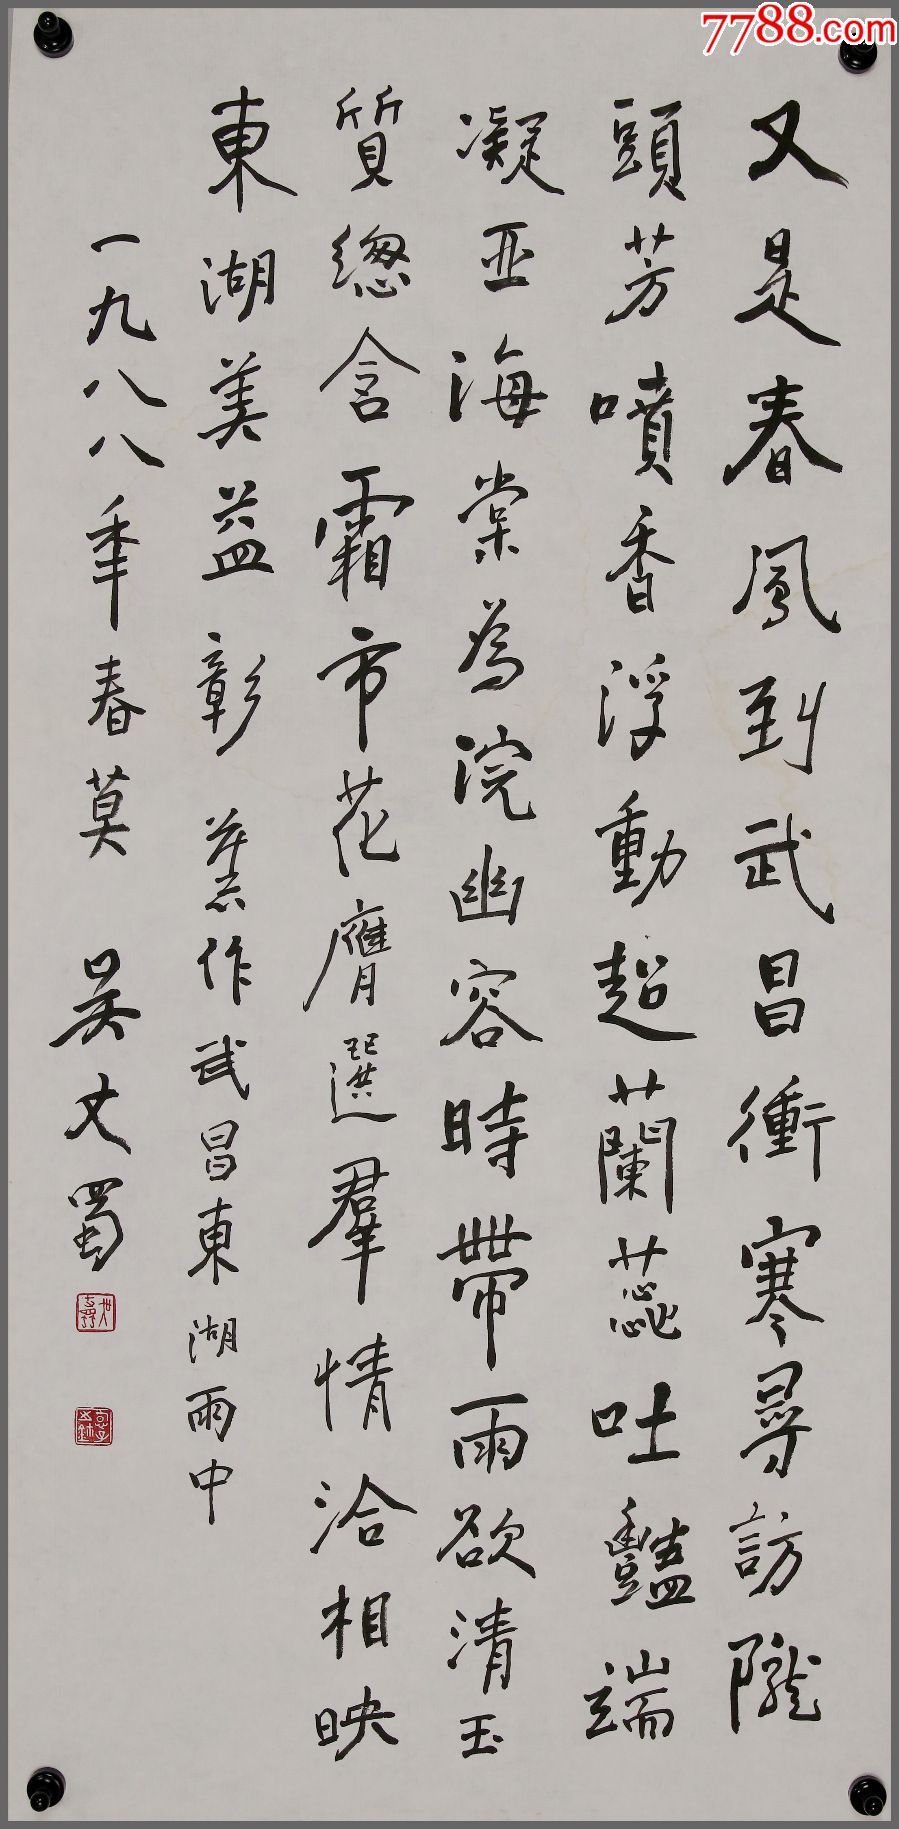 7788.com
又是春風到武昌衝寒尋訪隴
頭芳噴香浮動超蘭蕊吐豔端
凝亚海棠為浣幽容時帶雨欲清玉
質總含霜市花膺選羣情洽相映
東湖美益彰 舊作武昌東湖雨中
一九八八年春莫 吴丈蜀